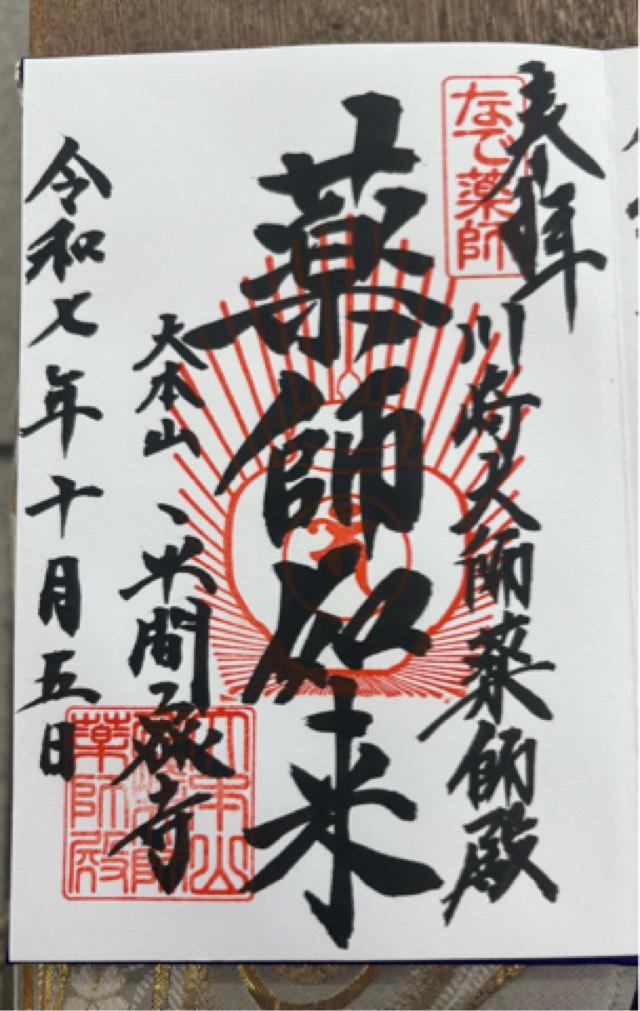 奉拝
なで薬師
川崎大師薬師殿
薬師如来
大本山
平間寺
令和七年十月五日
大本山
薬師殿